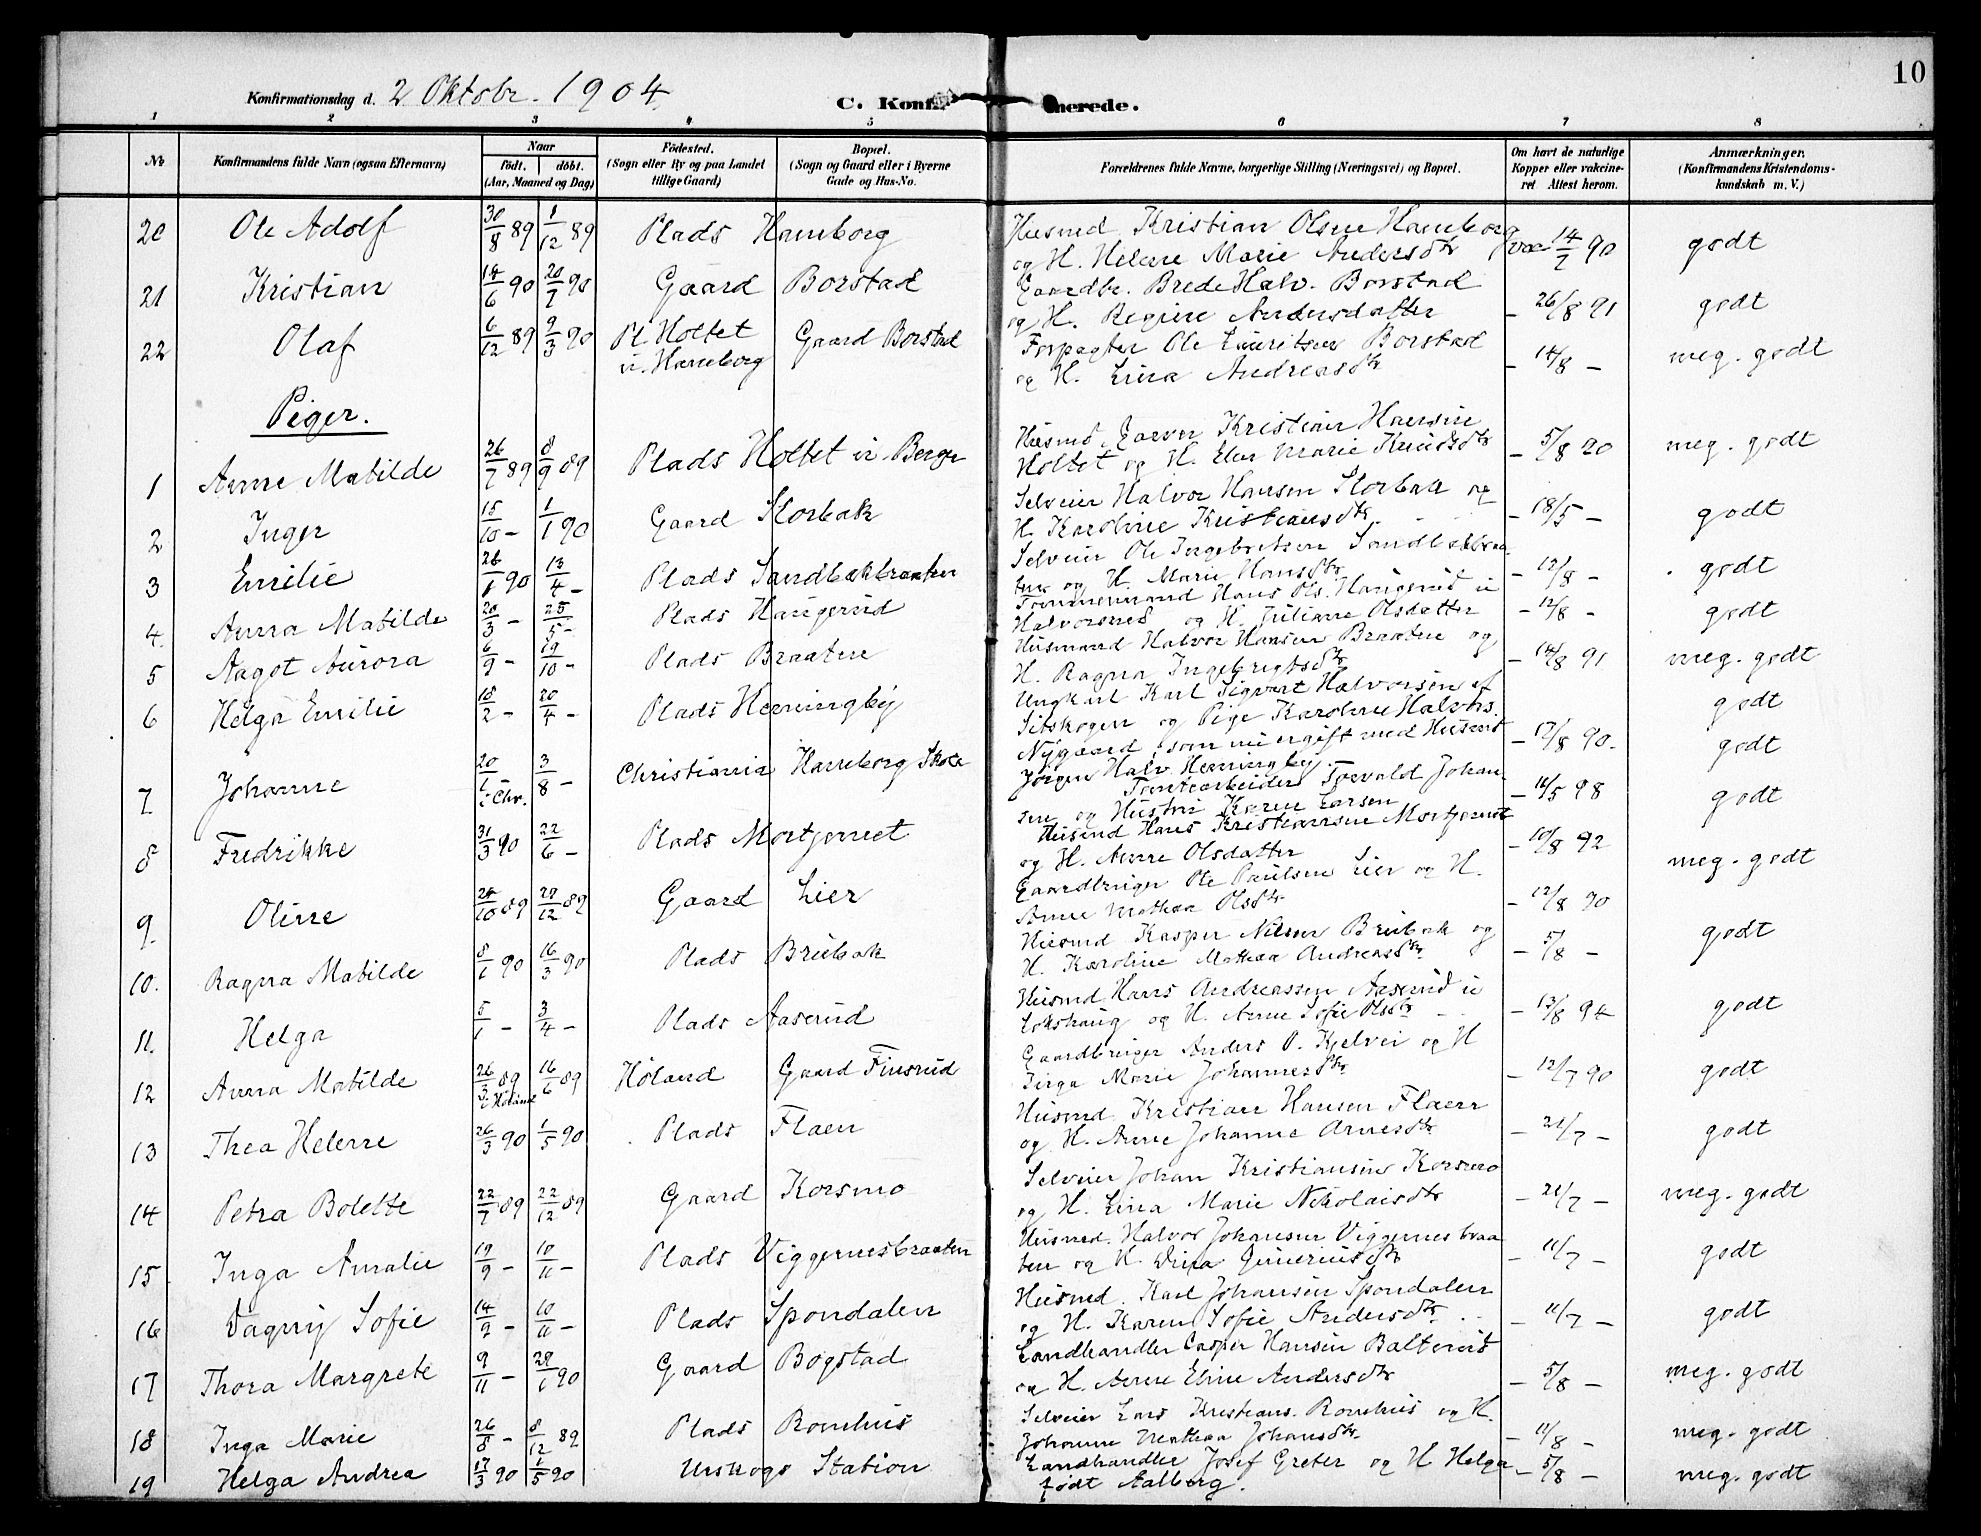 10
Konfirmationsdag d. 2 Oktobr. 1904.
C. Konfirmerede.
1 2 3 4 5 6 7 8
No Konfirmandens fulde Navn (ogsaa Efternavn) Naar født. døbt. (Aar, Maaned og Dag) Fødested. (Sogn eller By og paa Landet tillige Gaard) Bopæl. (Sogn og Gaard eller i Byerne Gade og Hus-No. Forældrenes fulde Navne, borgerlige Stilling (Næringsvei) og Bopæl. Om havt de naturlige Kopper eller vakcineret. Attest herom. Anmærkninger. (Konfirmandens Kristendomskundskab m. V.)
20 Ole Adolf 30/8 89 1/12 89 Plads Haneborg Husmd Kristian Olsen Haneborg
og H. Helene Marie Andersdtr vac 14/7 90 godt
21 Kristian 14/6 90 20/7 90 Gaard Borstad Gaardbr. Brede Halv. Borstad
og H. Regine Andersdatter – 26/8 91 godt
22 Olaf 6/12 89 9/3 90 Pl. Holtet
u. Haneborg Gaard Borstad Forpagter Ole Lauritsen Borstad
og H. Lina Andreasdtr – 14/8 – meg. godt
Piger.
1 Anne Matilde 26/7 89 8/9 89 Plads Holtet u. Berger Husmd. Garver Kristian Hansen
Holtet og H. Elen Marie Knudsdtr – 5/8 90 meg. godt
2 Inger 15/10 – 1/1 90 Gaard Storbak Selveier Halvor Hansen Storbak og
H. Karoline Kristiansdtr – 18/5 – godt
3 Emilie 26/1 90 13/4 – Plads Sandbækbraaten Selveier Ole Ingebretsen Sandbækbraa
ten og H. Marie Hansdtr – 12/8 – godt
4. Anna Matilde 20/3 – 25/5 – Plads Haugerud Tømmermand Hans Ols. Haugerud u
Halvorsrud og H. Juliane Olsdatter – 12/8 – godt
5 Aagot Aurora 6/9 – 19/10 – Plads Braaten Husmand Halvor Hansen Braaten og
H. Ragna Ingebrigtsdtr – 14/8 91 meg. godt
6 Helga Emilie 18/2 – 20/4 – Plads Henningby Ungkarl Karl Sigvart Halvorsen af
Setskogen og Pige Karoline Halvors.
Nygaard, som nu er gift med Husmd
Jørgen Halv Henningby. – 17/8 90. godt
godt
7 Johanne 20/1 –
i Chr. 3/8 – Christiania Haneborg Skole Tomtearbeider Torvald Johan
sen og Hustru Karen Larsen – 11/5 98 godt
8 Fredrikke 31/3 90 22/6 – Plads Mortjernet Husmd Hans Kristiansen Mortjernet
og H. Anne Olsdatter – 10/8 92 meg. godt
9. Oline 24/10 89 29/12 89 Gaard Lier Gaardbruger Ole Paulsen Lier og H.
Anne Mathea Olsdtr – 12/8 90 godt
10. Ragna Matilde 8/1 90 16/3 90 Plads Brubak Husmd Kasper Nilsen Brubak og
H. Karoline Mathea Andreasdtr – 5/8 –
11. Helga 5/1 – 3/4 – Plads Aaserud Husmd Hans Andreassen Aaserud u
Lokshaug og H. Anne Sofie Olsdtr – 13/8 94 godt
12 Anna Matilde 26/3 89
i Høland 16/6 89 Høland Gaard Finsrud Gaardbruger Anders O. Kjelvei og H
Inga Marie Johannesdtr – 12/7 90 godt
13 Thea Helene 26/3 90 1/5 90 Plads Flaen Husmd Kristian Hansen Flaen
og H. Anne Johanne Arnesdtr – 21/7 – godt
14 Petra Bolette 22/7 89 22/12 89 Gaard Korsmo Selveier Johan Kristiansen Korsmo
og H. Lina Marie Nikolaisdtr – 21/7 – meg. godt
15 Inga Amalie 19/9 – 10/11 – Plads Viggernesbraaten Husmd. Halvor Johansen Viggernesbraa
ten og H. Dina Guneriusdtr – 11/7 – godt
16 Dagny Sofie 14/9 – 10/11 – Plads Spondalen Husmd. Karl Johansen Spondalen
og H. Karen Sofie Andersdtr. – 11/7 – godt
17 Thora Margrete 9/11 – 29/1 90 Gaard Bogstad Landhandler Casper Hansen Balterud
og H. Anne Eline Andersdtr – 5/8 – meg. godt
18 Inga Marie 26/8 – 8/12 89 Plads Romhus Selveier Lars Kristians. Romhus og H.
Johanne Mathea Johansdtr. – 11/8 – meg. godt
19 Helga Andrea 17/3 90 1/5 90 Urskogs Station Landhandler Josef Greter og H Helga
født Aalborg. – 5/8 – meg. godt